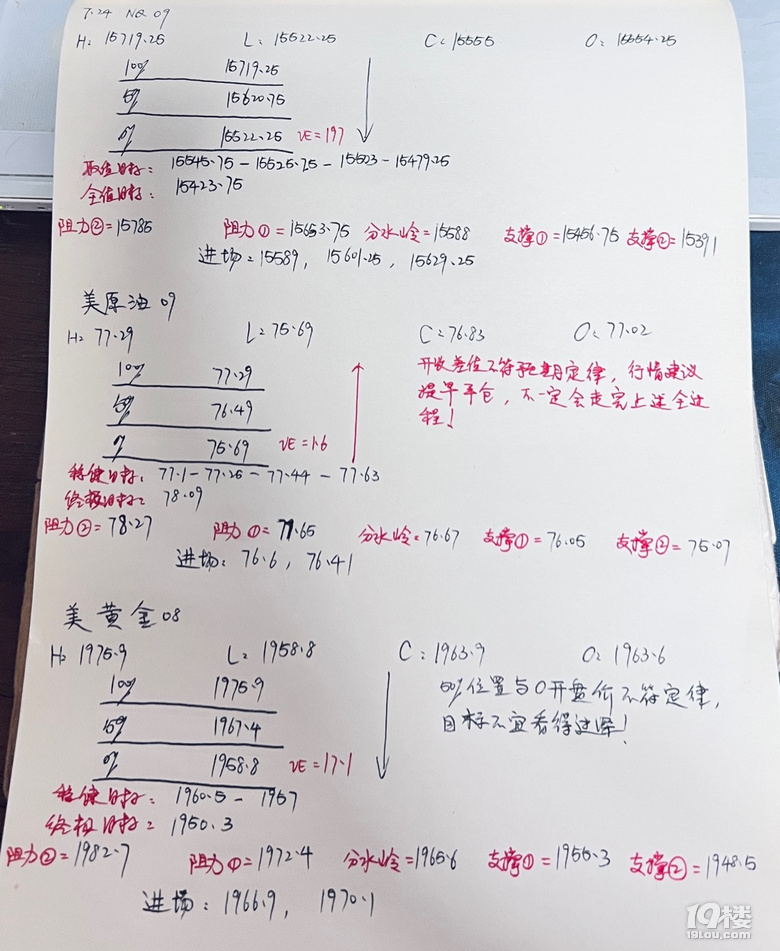 7.24 NQ 09
H: 15719.25 L: 15522.25 C: 15555 O: 15554.25
100% 15719.25
50% 15620.75
0% 15522.25 VE=197
取值目标: 15545.75-15525.75-15503-15479.25
全值目标: 15423.75
阻力②=15785 阻力①=15653.75 分水岭=15588 支撑①=15456.75 支撑②=15391
进场:15589, 15601.25, 15629.25
美原油09
H: 77.29 L: 75.69 C: 76.83 O: 77.02
100% 77.29
50% 76.49
0% 75.69 VE=1.6
开收差值不符预期定律,行情建议
提早平仓,不一定会走完上述全过
程!
稳健目标: 77.1-77.25-77.44-77.63
终极目标: 78.09
阻力②=78.27 阻力①=77.65 分水岭=76.67 支撑①=76.05 支撑②=75.07
进场: 76.6, 76.41
美黄金08
H: 1975.9 L: 1958.8 C: 1963.9 O: 1963.6
100% 1975.9
50% 1967.4
0% 1958.8 VE=17.1
50%位置与O开盘价不符定律,
目标不宜看得过深!
稳健目标: 1960.5-1957
终极目标: 1950.3
阻力②=1982.7 阻力①=1972.4 分水岭=1965.6 支撑①=1955.3 支撑②=1948.5
进场: 1966.9, 1970.1
19楼
19lou.com